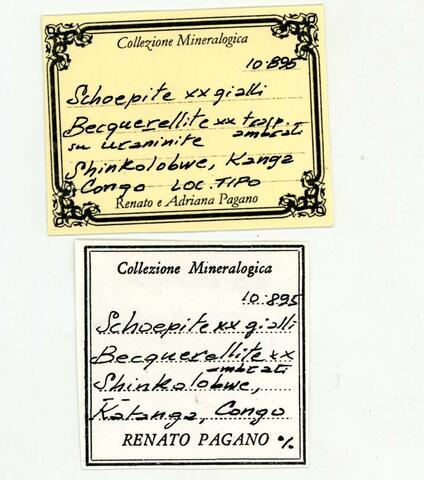 Collezione Mineralogica
10.895
Schoepite xx gialli
Becquerellite xx trasp.
ambrati
su uraninite
Shinkolobwe, Kanga
Congo LOC. TIPO
Renato e Adriana Pagano
Collezione Mineralogica
10.895
Schoepite xx gialli
Becquerellite xx
ambrati
Shinkolobwe,
Katanga, Congo
RENATO PAGANO %